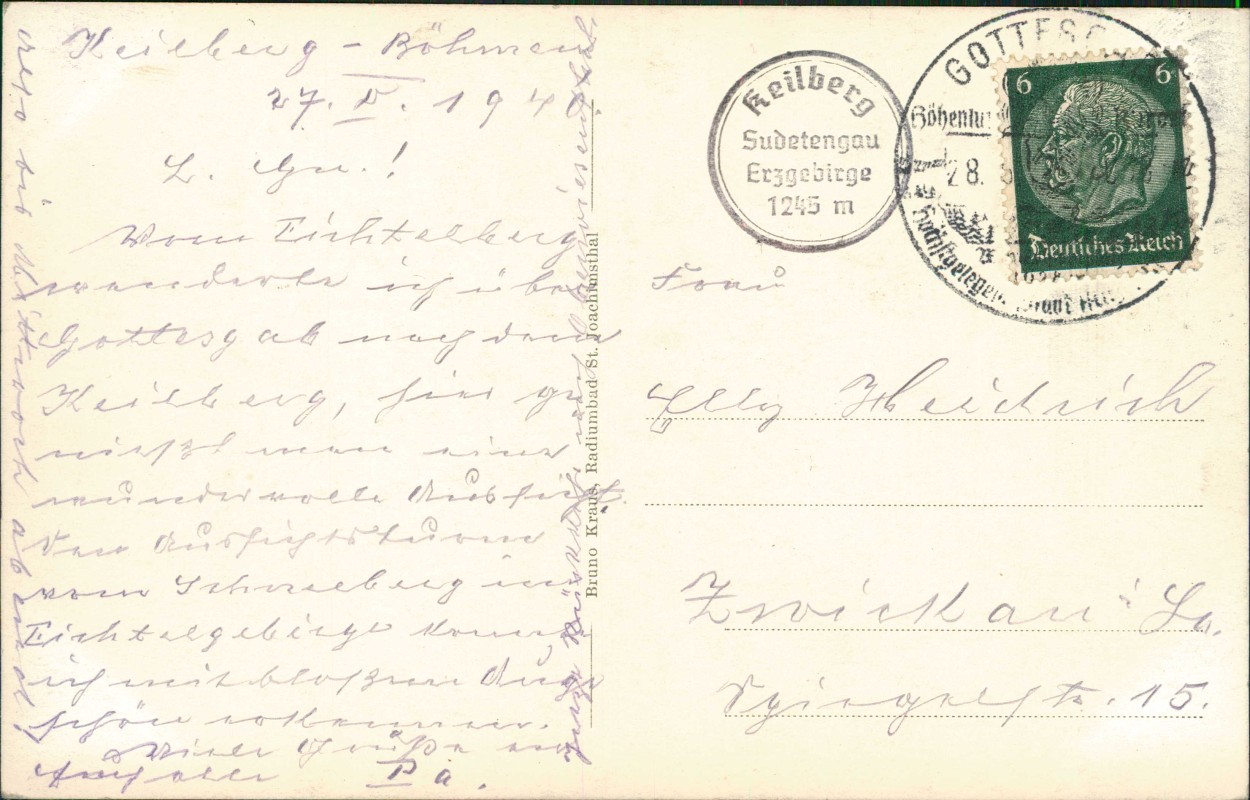 Keilberg - Böhmen
27. V. 194
L. Gu.!
Vom Fichtelberg
wanderte ich über
Gottesgab nach dem
Keilberg, hier ge
nießt man eine
wundervolle Aussicht.
Den Aussichtsturm
vom Schneeberg im
Fichtelgebirge konnte
ich mit bloßem Auge
schön erkennen.
Viele Grüße an
Euch alle Pa.
also bis Mittwoch abend!
Bruno Kraus, Radiumbad St. Joachimsthal
Keilberg
Sudetengau
Erzgebirge
1245 m
GOTTESG
28.
6 6
Deutsches Reich
Frau
Elly Heidrich
Zwickau i. Sa.
Spiegelstr. 15.